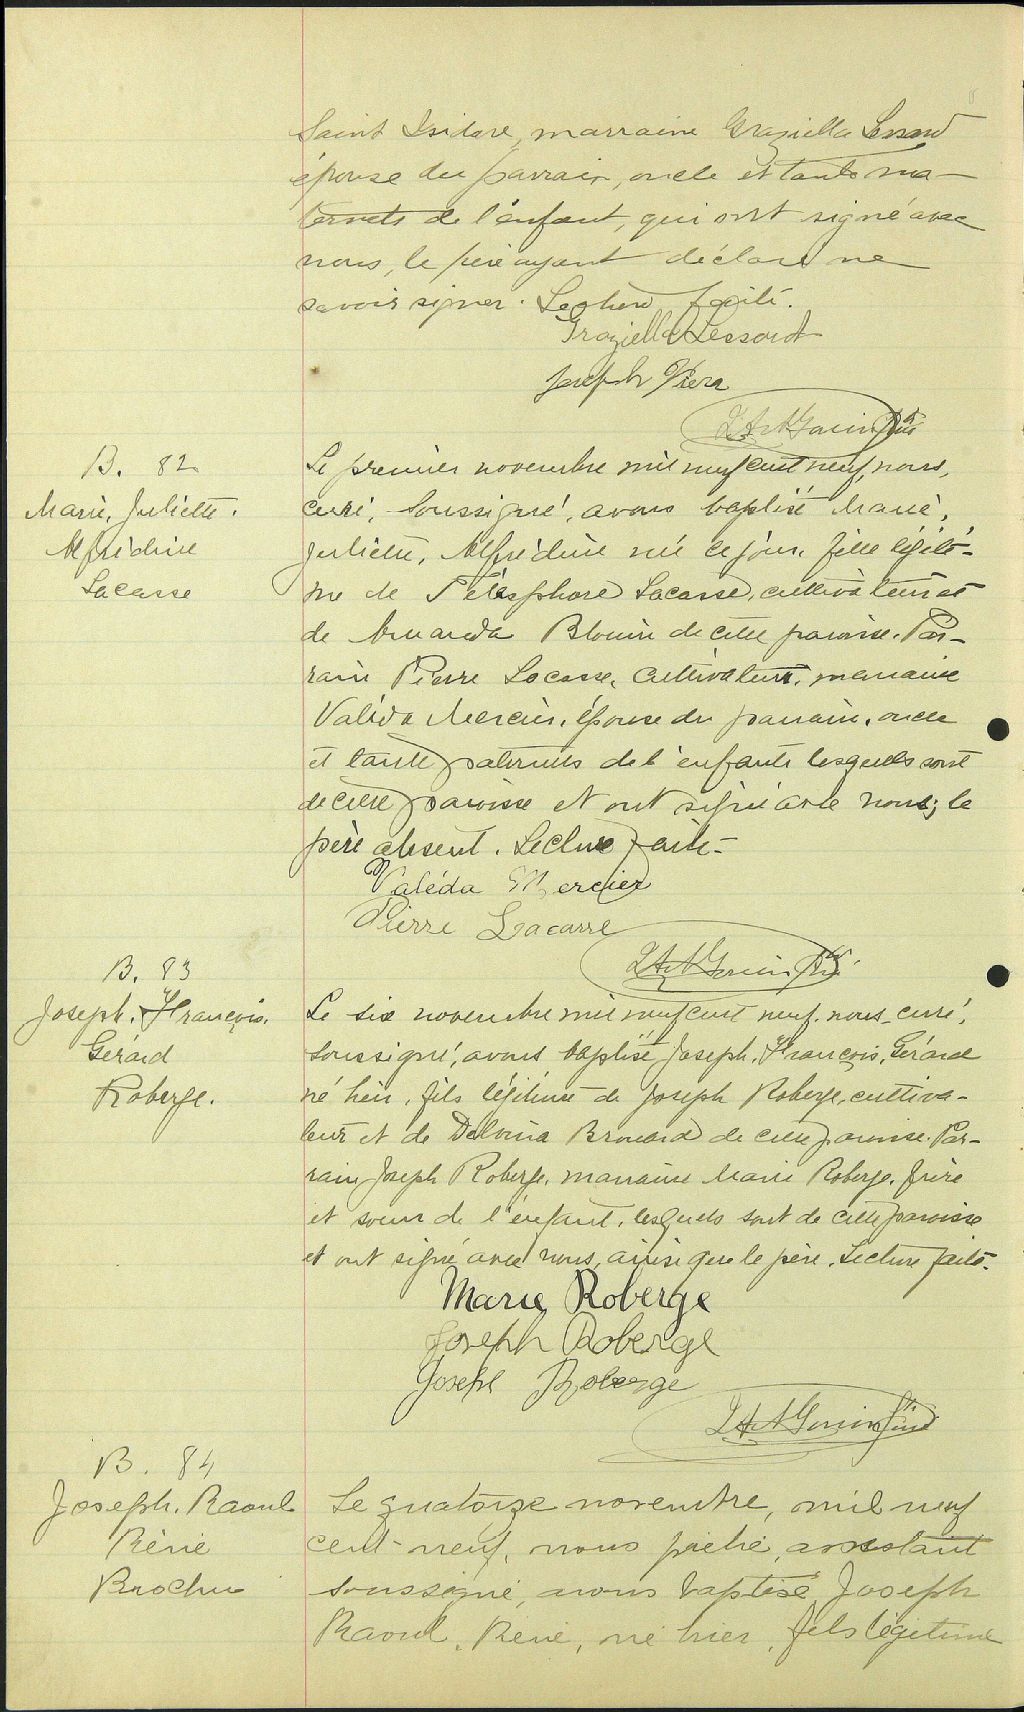 Saint Isidore, marraine Graziella Lessard
épouse du parrain, oncle et tante ma-
ternels de l'enfant, qui ont signé avec
nous, le père ayant déclaré ne
savoir signer. Lecture faite.
Graziella Lessard
Joseph
B. 82
Marie, Juliette.
Alfrédine
Lacasse
Le premier novembre mil neuf cent neuf, nous,
curé, soussigné, avons baptisé Marie,
Juliette, Alfrédine née ce jour, fille légiti-
me de Télesphore Lacasse, cultivateur et
de Amanda Blouin de cette paroisse. Par-
rain Pierre Lacasse, cultivateur, marraine
Valéda Mercier, épouse du parrain, oncle
et tante paternels de l'enfant lesquels sont
de cette paroisse et ont signé avec nous; le
père absent. Lecture faite-
Valéda Mercier
Pierre Lacasse
B. 83
Joseph. François.
Gérard
Roberge.
Le six novembre mil neuf cent neuf, nous, curé,
soussigné, avons baptisé Joseph, François, Gérard
né hier, fils légitime de Joseph Roberge, cultiva-
teur et de Delvina Brouard de cette paroisse. Par-
rain Joseph Roberge, marraine Marie Roberge, frère
et soeur de l'enfant, lesquels sont de cette paroisse
et ont signé avec nous, ainsi que le père. Lecture faite.
Marie Roberge
Joseph Roberge
Joseph Roberge
B. 84
Joseph. Raoul
Réné
Brochu
Le quatorze novembre, mil neuf
cent-neuf, nous prêtre, assistant
soussigné, avons baptisé Joseph
Raoul, Réné, né hier, fils légitime